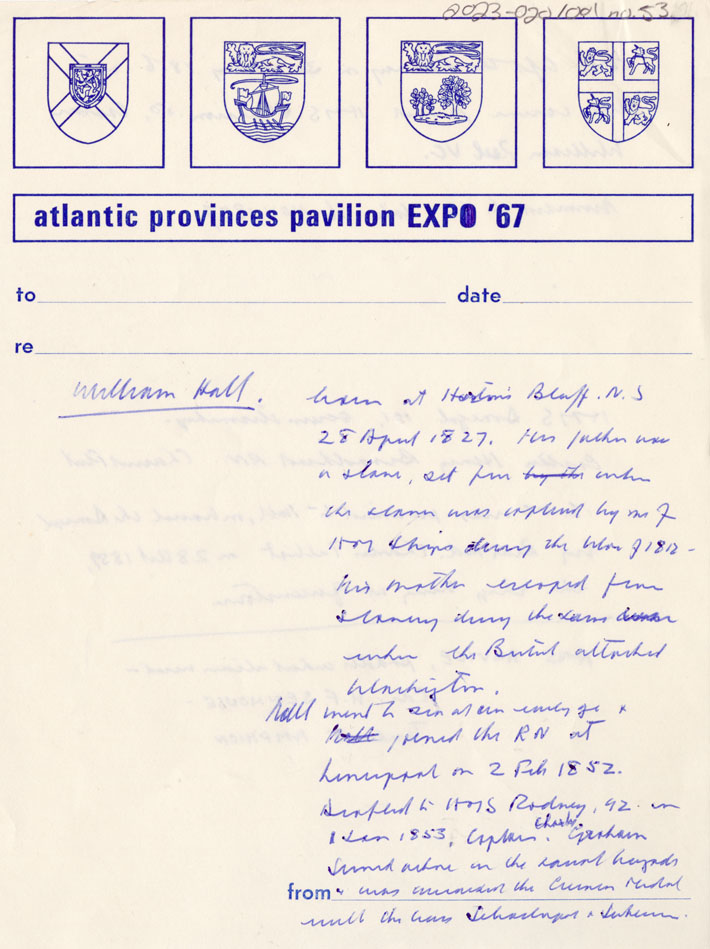 2023-020/001 no. 53
atlantic provinces pavilion EXPO '67
to date
re
William Hall. born at Horton's Bluff. N.S
28 April 1827. His father was
a slave, set free when
the slaver was captured by one of
HM Ships during the War of 1812-
His mother escaped from
slavery during the war
when the British attacked
Washington.
Hall went to sea at an early age &
Hall joined the RN at
Liverpool on 2 Feb 1852.
drafted to HMS Rodney, 92. in
Jan 1853, Captain Charles Graham
Served ashore in the naval brigade
from & was awarded the Crimea Medal
with the bars Sebastopol & Inkerman.